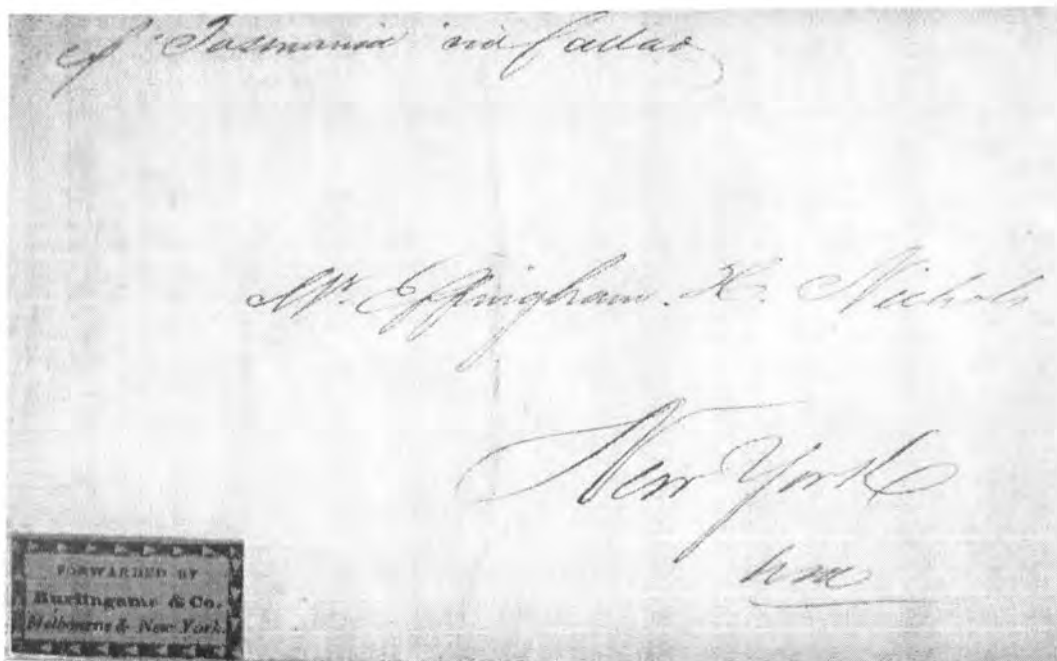 "Tasmania" via Callao
Mr. Effingham H. Nichols
New York
FORWARDED BY
Burlingame & Co.
Melbourne & New York.